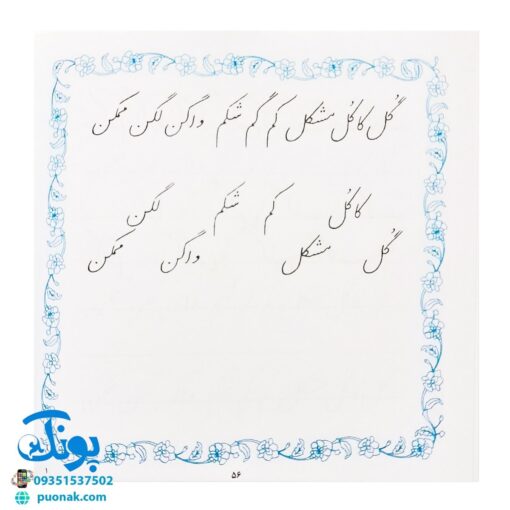 گُل کاکُل مشکل کم گم شکم واگن لگن ممکن
کاکُل کم شکم لگن
گُل مشکل واگن ممکن
۱
۵۶
پونک
09351537502
puonak.com